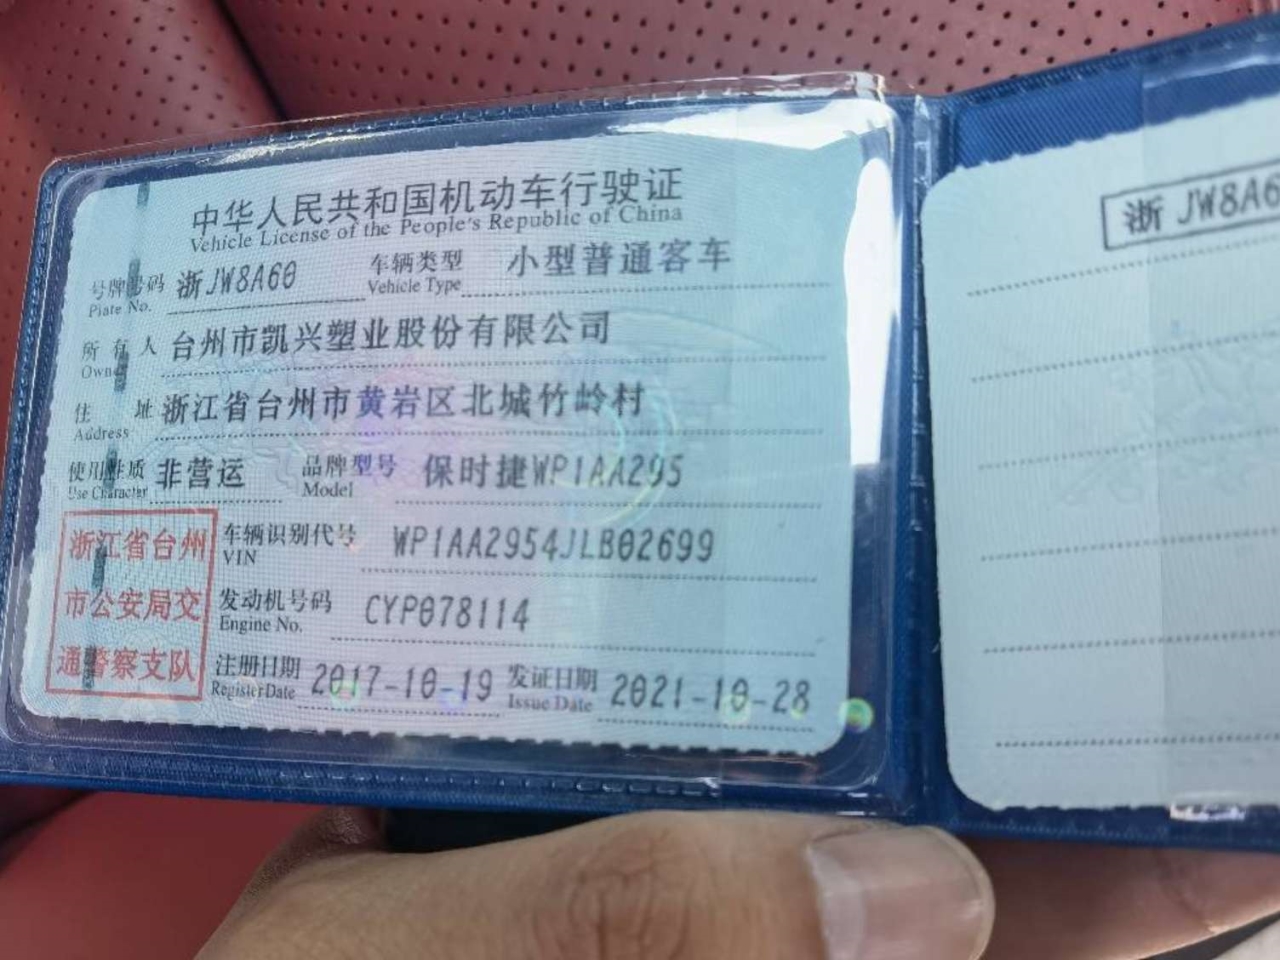 中华人民共和国机动车行驶证
Vehicle License of the People's Republic of China
号牌号码 浙JW8A60 车辆类型 小型普通客车
Plate No. Vehicle Type
所有人 台州市凯兴塑业股份有限公司
Owner
住址 浙江省台州市黄岩区北城竹岭村
Address
使用性质 非营运 品牌型号 保时捷WP1AA295
Use Character Model
浙江省台州
市公安局交
通警察支队
车辆识别代号 WP1AA2954JLB02699
VIN
发动机号码 CYP078114
Engine No.
注册日期 2017-10-19 发证日期 2021-10-28
Register Date Issue Date
浙JW8A6